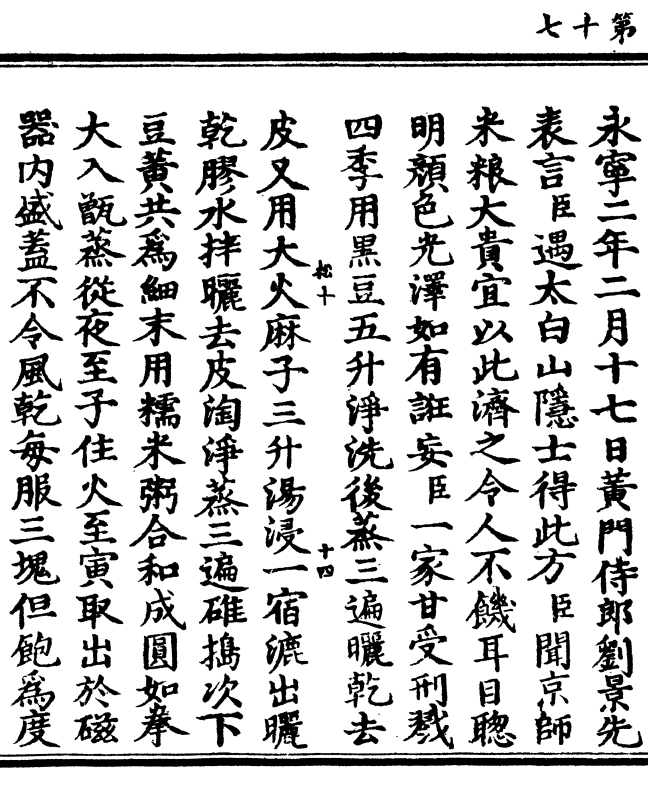 第十七
永寧二年二月十七日黃門侍郎劉景先
表言臣遇太白山隱士得此方臣聞京師
米粮大貴宜以此濟之令人不饑耳目聰
明顏色光澤如有誑妄臣一家甘受刑戮
四季用黑豆五升淨洗後蒸三遍曬乾去
皮又用大火麻子三升湯浸一宿漉出曬
松十
十四
乾膠水拌曬去皮淘淨蒸三遍碓搗次下
豆黃共爲細末用糯米粥合和成圓如拳
大入甑蒸從夜至子住火至寅取出於磁
器內盛蓋不令風乾每服三塊但飽爲度